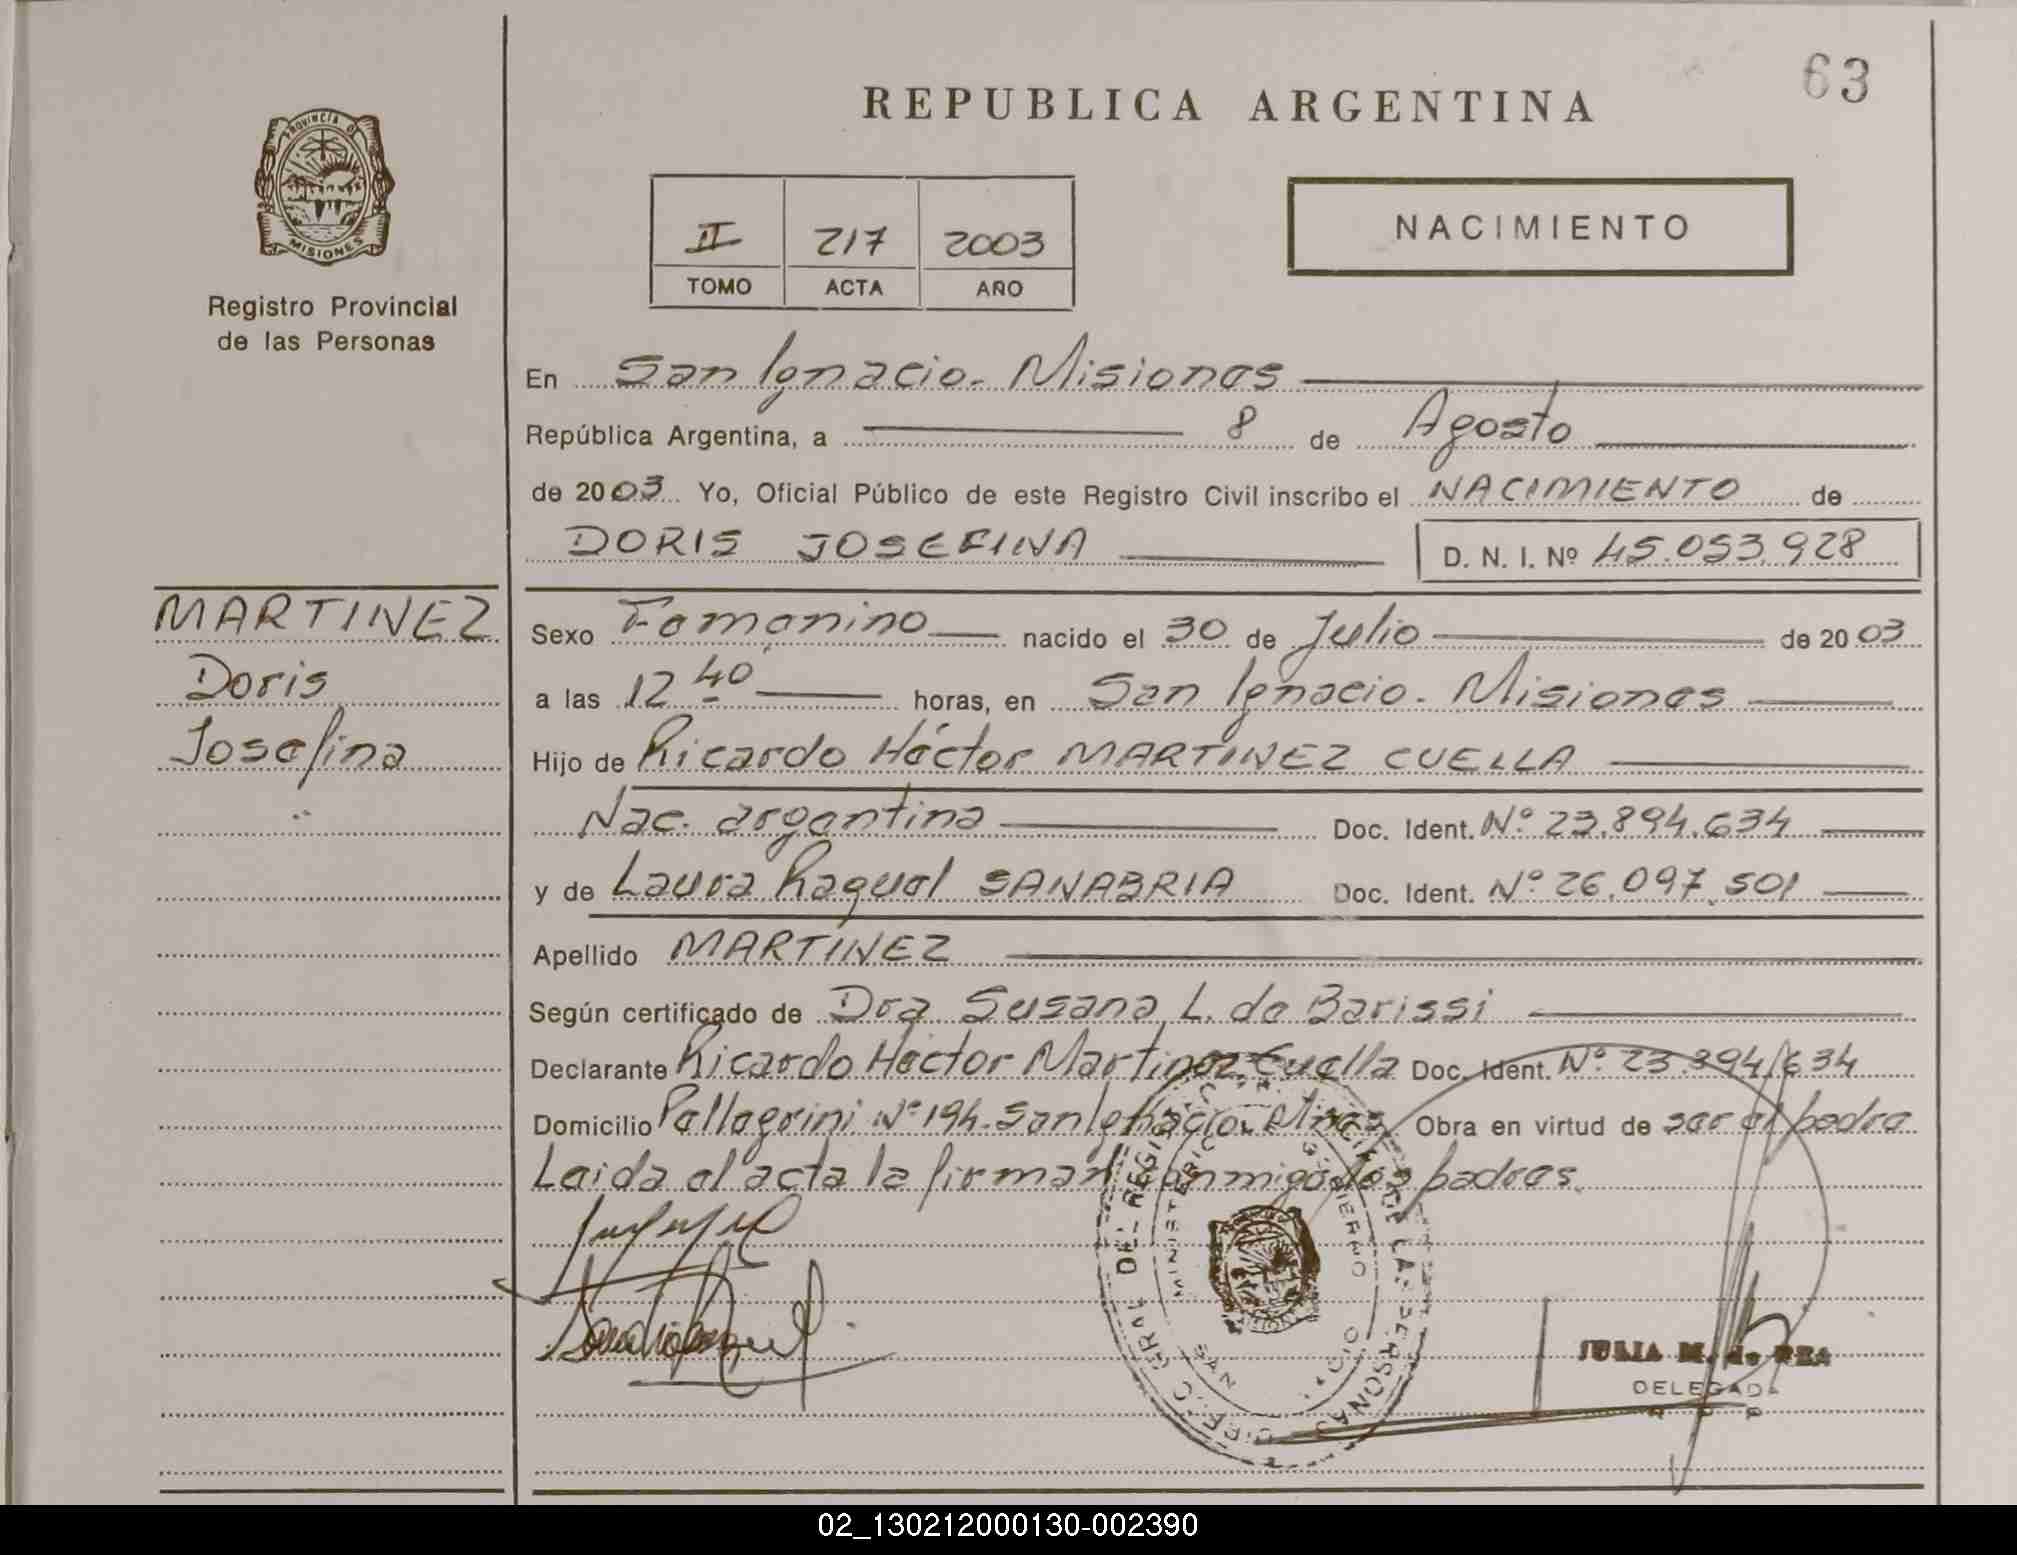 63
REPUBLICA ARGENTINA
PROVINCIA DE
MISIONES
Registro Provincial
de las Personas
II 217 2003
TOMO ACTA AÑO
NACIMIENTO
En San Ignacio - Misiones
República Argentina, a 8 de Agosto
de 2003 Yo, Oficial Público de este Registro Civil inscribo el NACIMIENTO de
DORIS JOSEFINA D. N. I. Nº 45.053.928
MARTINEZ
Doris
Josefina
Sexo Femenino nacido el 30 de Julio de 2003
a las 12 40 horas, en San Ignacio - Misiones
Hijo de Ricardo Héctor MARTINEZ CUELLA
Nac. argentina Doc. Ident. Nº 23.894.634
y de Laura Raquel SANABRIA Doc. Ident. Nº 26.097.501
Apellido MARTINEZ
Según certificado de Dra Susana L. de Barissi
Declarante Ricardo Héctor Martinez Cuella Doc. Ident. Nº 23.894.634
Domicilio Pellegrini Nº 194 - San Ignacio - Mnes Obra en virtud de ser el padre
Leida el acta la firman conmigo los padres.
DEL REGISTRO DE LAS PERSONAS
MINISTERIO GOBIERNO
JULIA M. de REA
DELEGADA
R P P
02_130212000130-002390